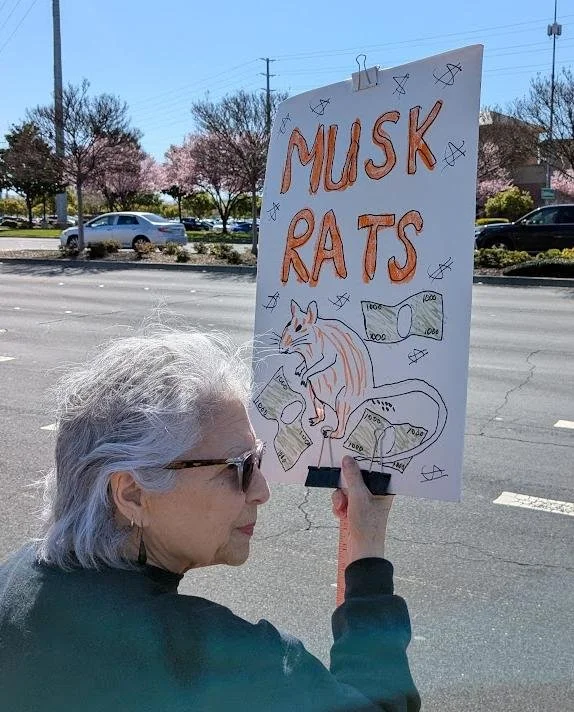 MUSK
RATS
$ $ $ $ $ $ $ $ $ $ $
1000 1000
1000 1000
1000
1000
1000